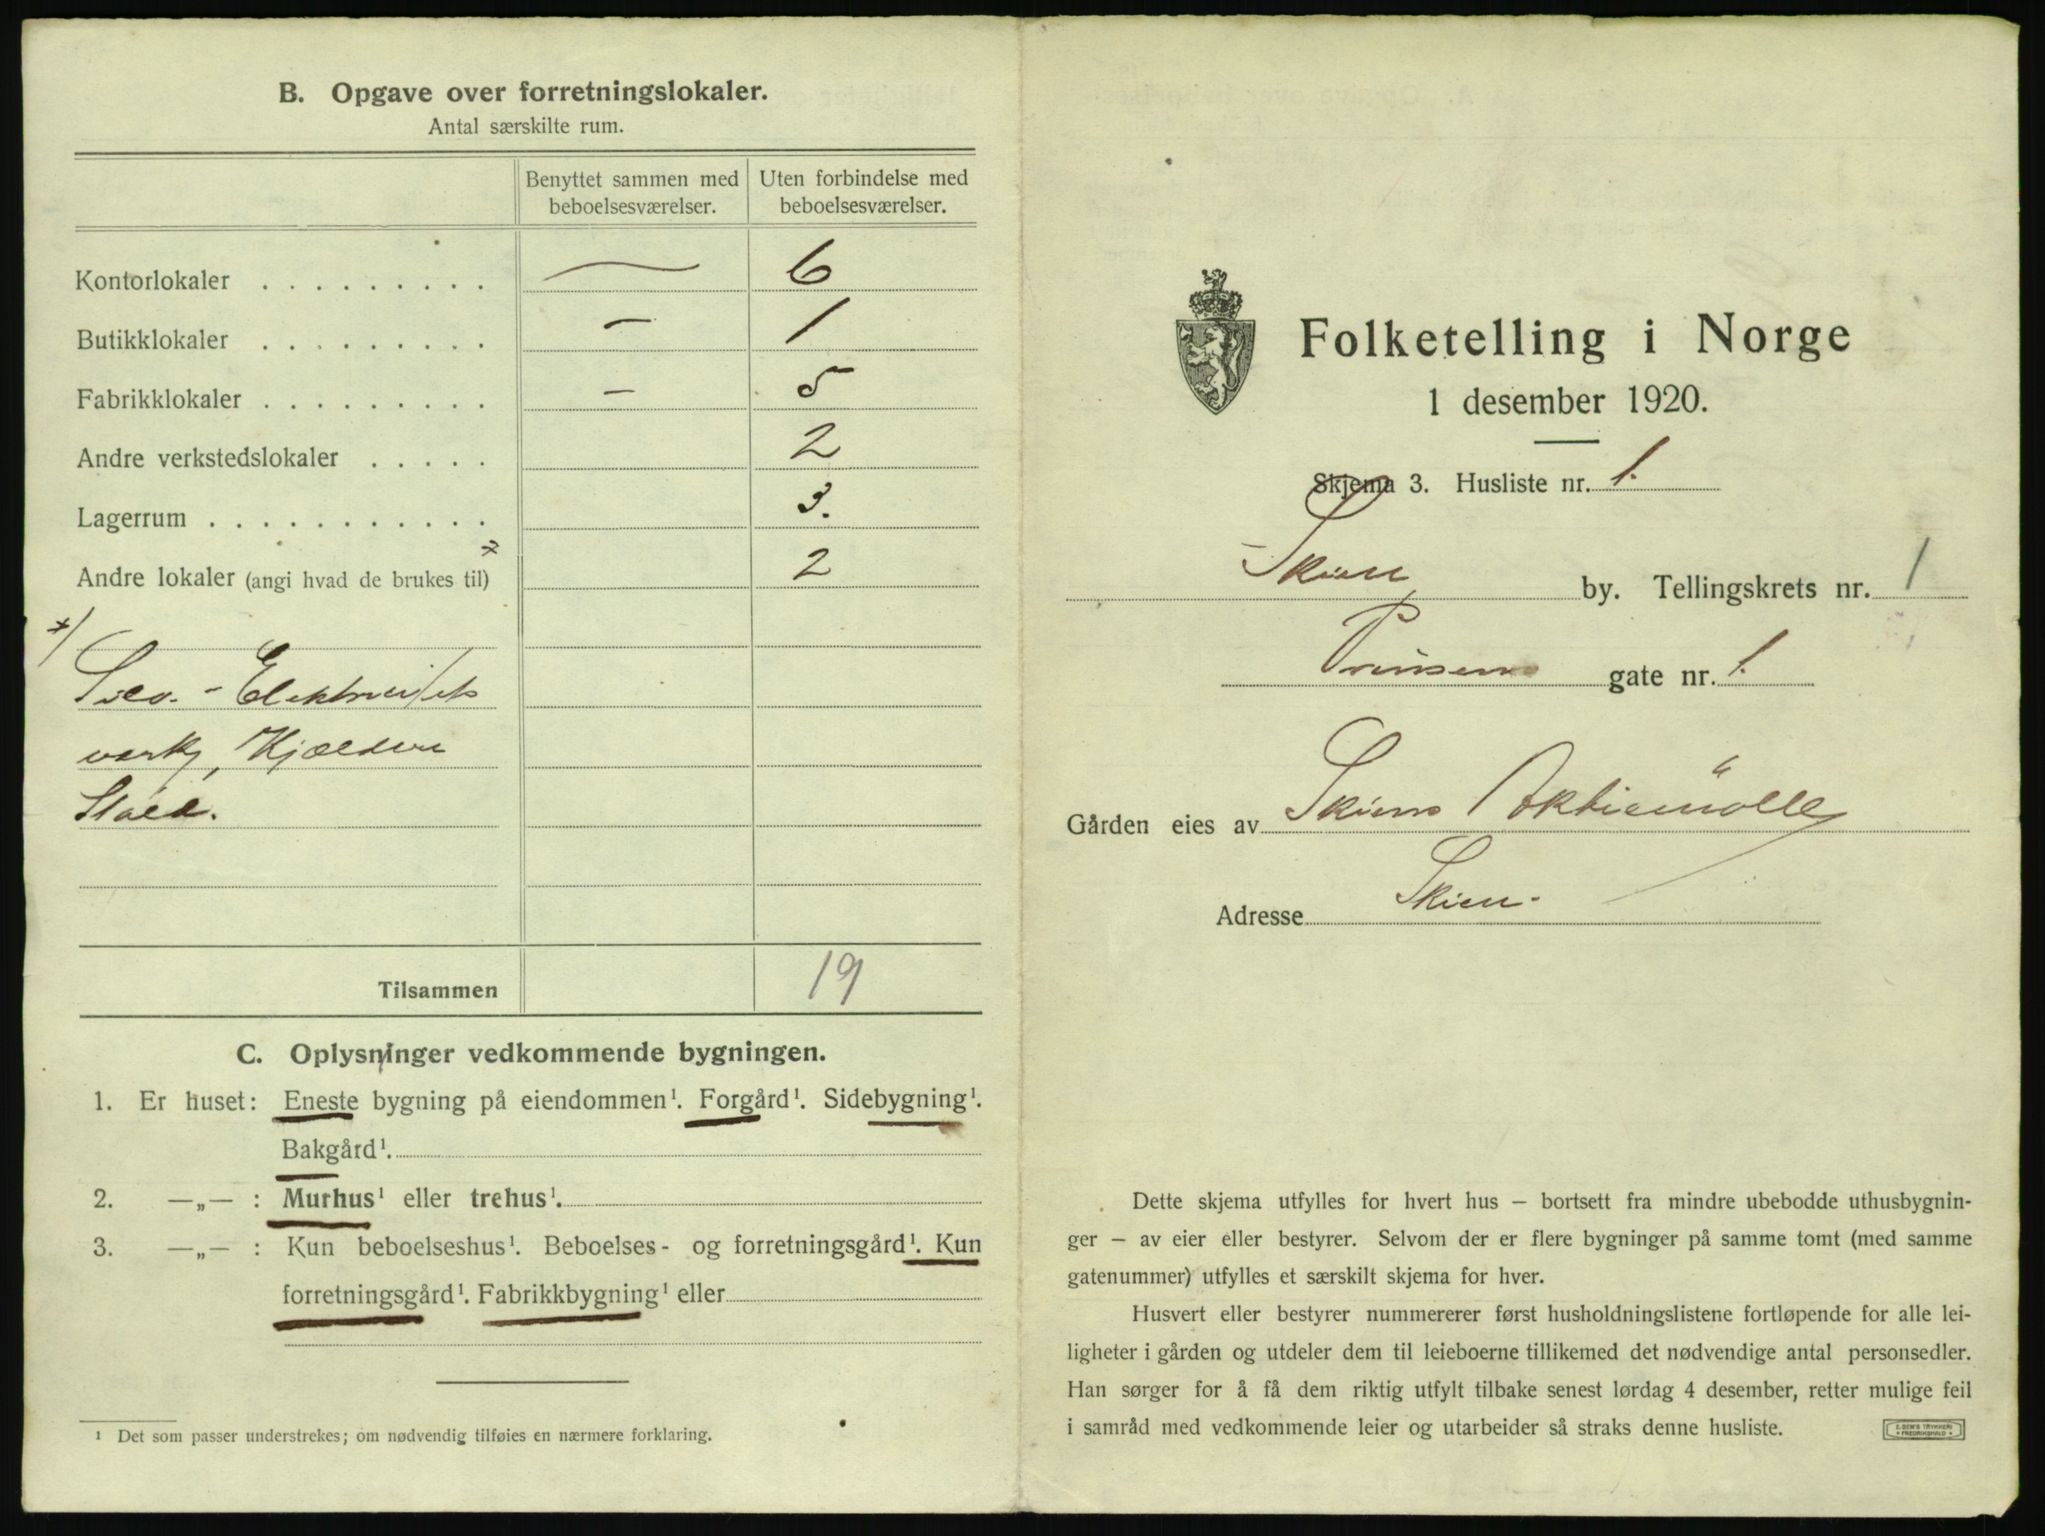 B. Opgave over forretningslokaler.
Antal særskilte rum.
Benyttet sammen med beboelsesværelser.
Uten forbindelse med beboelsesværelser.
Kontorlokaler . . . . . . . . . — 6
Butikklokaler . . . . . . . . . — 1
Fabrikklokaler . . . . . . . . . — 5
Andre verkstedslokaler . . . . . 2
Lagerrum . . . . . . . . . . . 3.
Andre lokaler (angi hvad de brukes til) 2
Silo. - Elektricitets
verk, Kjælder
Stald.
Tilsammen 19
C. Oplysninger vedkommende bygningen.
1. Er huset: Eneste bygning på eiendommen¹. Forgård¹. Sidebygning¹.
Bakgård¹.
2. —„— : Murhus¹ eller trehus¹.
3. —„— : Kun beboelseshus¹. Beboelses- og forretningsgård¹. Kun
forretningsgård¹. Fabrikkbygning¹ eller
¹ Det som passer understrekes; om nødvendig tilføies en nærmere forklaring.
Folketelling i Norge
1 desember 1920.
Skjema 3. Husliste nr. 1.
Skien by. Tellingskrets nr. 1
Prinsens gate nr. 1.
Gården eies av Skiens Aktiemölle
Adresse Skien.
Dette skjema utfylles for hvert hus — bortsett fra mindre ubebodde uthusbygnin-
ger — av eier eller bestyrer. Selvom der er flere bygninger på samme tomt (med samme
gatenummer) utfylles et særskilt skjema for hver.
Husvert eller bestyrer nummererer først husholdningslistene fortløpende for alle lei-
ligheter i gården og utdeler dem til leieboerne tillikemed det nødvendige antal personsedler.
Han sørger for å få dem riktig utfylt tilbake senest lørdag 4 desember, retter mulige feil
i samråd med vedkommende leier og utarbeider så straks denne husliste.
E. SEM'S TRYKKERI
FREDRIKSHALD